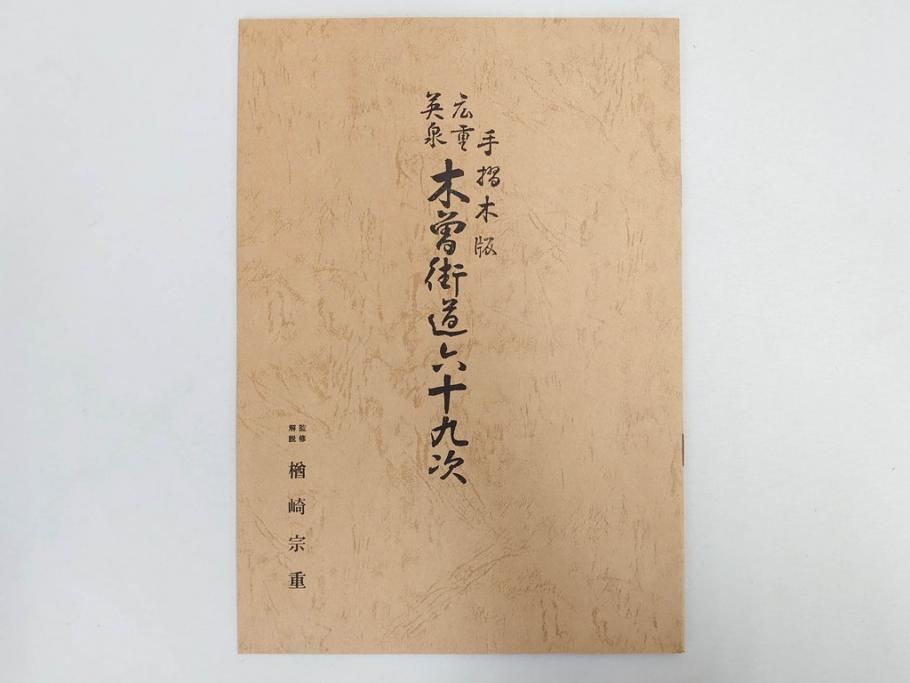 手摺木版
広重
英泉
木曽街道六十九次
監修
解説
楢崎宗重